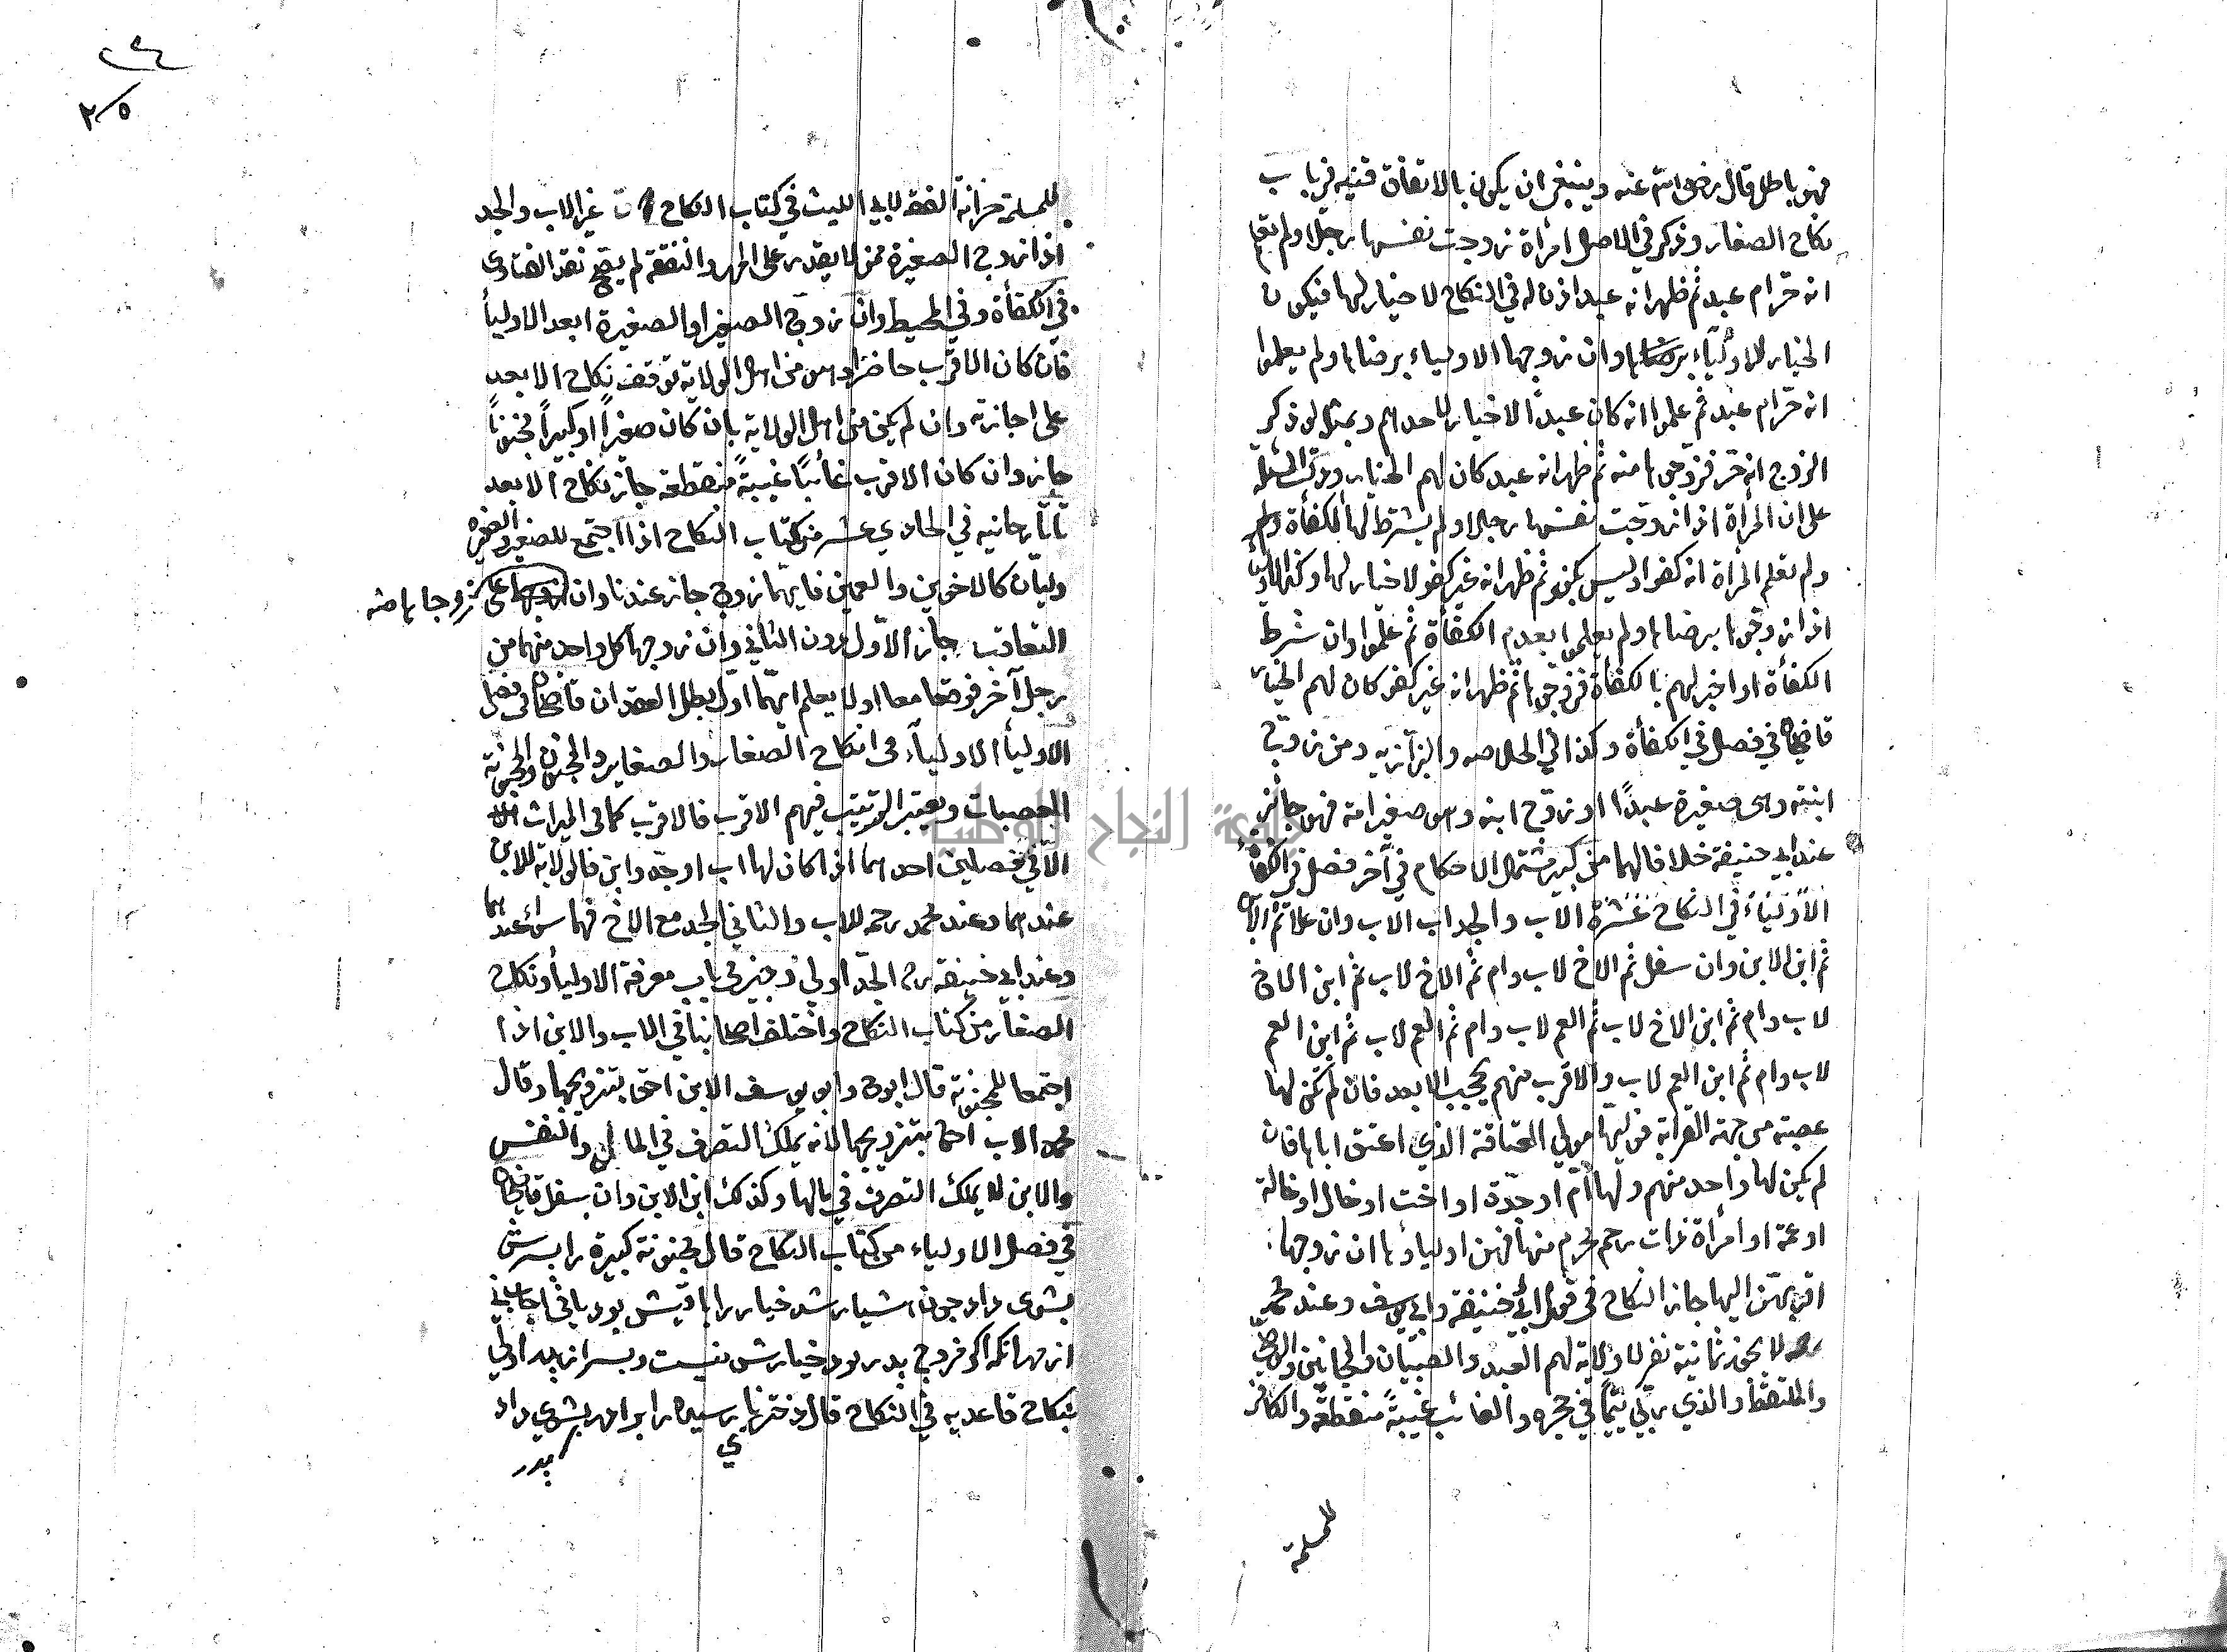 فهو باطل قال رضى الله عنه وينبغى ان يكون بالاتفاق قنيه في باب
نكاح الصغار وذكر في الاصل امرأة زوجت نفسها رجلا ولم تعلم
انه حرّ ام عبد ثم ظهر انه عبد اذن له في النكاح لا خيار لها فيكون
الخيار للاولياء برضاها وان زوجها الاولياء برضاها ولم يعلموا
انه حرّ ام عبد ثم علموا انه كان عبدًا لا خيار لاحدهم وبمثله لو ذكر
الزوج انه حرّ فزوجوها منه ثم ظهر انه عبد كان لهم الخيار ودلت المسئلة
على ان المرأة اذا زوجت نفسها رجلا ولم يشترط لها الكفأة
ولم تعلم المرأة انه كفو او ليس بكفو ثم ظهر انه غير كفو لا خيار لها وكذا الاولياء
اذا زوجوها برضاها ولم يعلموا بعدم الكفأة ثم علموا وان شرط
الكفأة او اخبر لهم بالكفأة فزوجوها ثم ظهر انه غير كفو كان لهم الخيار
قاضيخان في فصل في الكفأة وكذا في الخلاصه والبزازيه ومن زوج
ابنته وهى صغيرة عبدًا او زوج ابنه وهو صغير امة فهو جائز
عند ابي حنيفة خلافا لهما من كبير مشتمل الاحكام في آخر فصل في الكفأة
الاولياء في النكاح عشرة الاب والجد اب الاب وان علا ثم الابن
ثم ابن الابن وان سفل ثم الاخ لاب وام ثم الاخ لاب ثم ابن الاخ
لاب وام ثم ابن الاخ لاب ثم العم لاب وام ثم العم لاب ثم ابن العم
لاب وام ثم ابن العم لاب والاقرب منهم يحجب الابعد فان لم تكن لها
عصبة من جهة القرابة فوليها مولى العتاقة الذي اعتق اباها فان
لم يكن لها واحد منهم ولها امّ او جدّة او اخت او خال او خالة
او عمة او امرأة ذات رحم محرم منها فهن اولياؤها ان زوجها
اقربهن اليها جاز النكاح في قول ابي حنيفة وابي يوسف وعند محمد
رحمه لا يجوز ثمانية نفر لا ولاية لهم العبد والصبيان والمجانين والوصي
والملتقط والذي يربّي يتيمًا في حجره والغائب غيبةً منقطعة والكافر
للمسلمة
٢٤
٢/٥
للمسلمة خزانة الفقه لابي الليث في كتاب النكاح غير الاب والجد
اذا زوج الصغيرة ممن لا يقدر على المهر والنفقة لم يصح نقد الفتاوى
في الكفأة وفي المحيط وان زوج الصغير او الصغيرة ابعد الاوليأ
فان كان الاقرب حاضرا وهو من اهل الولاية توقف نكاح الابعد
على اجازته وان لم يكن من اهل الولاية بان كان صغيراً او كبيراً مجنوناً
جاز وان كان الاقرب غائبًا غيبةً منقطعة جاز نكاح الابعد
تاتارخانيه في الحادي عشر من كتاب النكاح اذا اجتمع للصغير والصغيرة
وليّان كالاخوين والعمين فايهما زوج جاز عندنا وان زوجاها منه على
التعاقب جاز الاول دون الثاني وان زوجها كل واحد منهما من
رجل آخر فوقعا معا او لا يعلم ايهما اول بطل العقدان قاضيخان في فصل
الاوليأ الاولياء فى انكاح الصغار والصغاير والمجنون والمجنونة
العصبات ويعتبر الترتيب فيهم الاقرب فالاقرب كما فى الميراث
الا في فصلين احدهما اذا كان لها اب او جد وابن فالولاية للابن
عندهما وعند محمد رحمه للاب والثاني الجد مع الاخ فهما سواء عندهما
وعند ابي حنيفة رح الجدّ اولى وجيز فى باب معرفة الاوليأ ونكاح
الصغار من كتاب النكاح واختلف اصحابنا في الاب والابن اذا
اجتمعا للمجنونة قال ابو ح وابو يوسف الابن احق بتزويجها وقال
محمد الاب احق بتزويجها لانه يملك التصرف في المال والنفس
والابن لا يملك التصرف في مالها وكذلك ابن الابن وان سفل قاضيخان
في فصل الاولياء من كتاب النكاح قال مجنونة كبيرة را پسرش
بشوى داد چون هشيار شد خيار
از بهر آنكه اگر فروج پدر بود خيارش نيست وپسر از پدر اولى
بنكاح قاعديه في النكاح قال دختر نارسيده را برادر بشوي داد
پدر